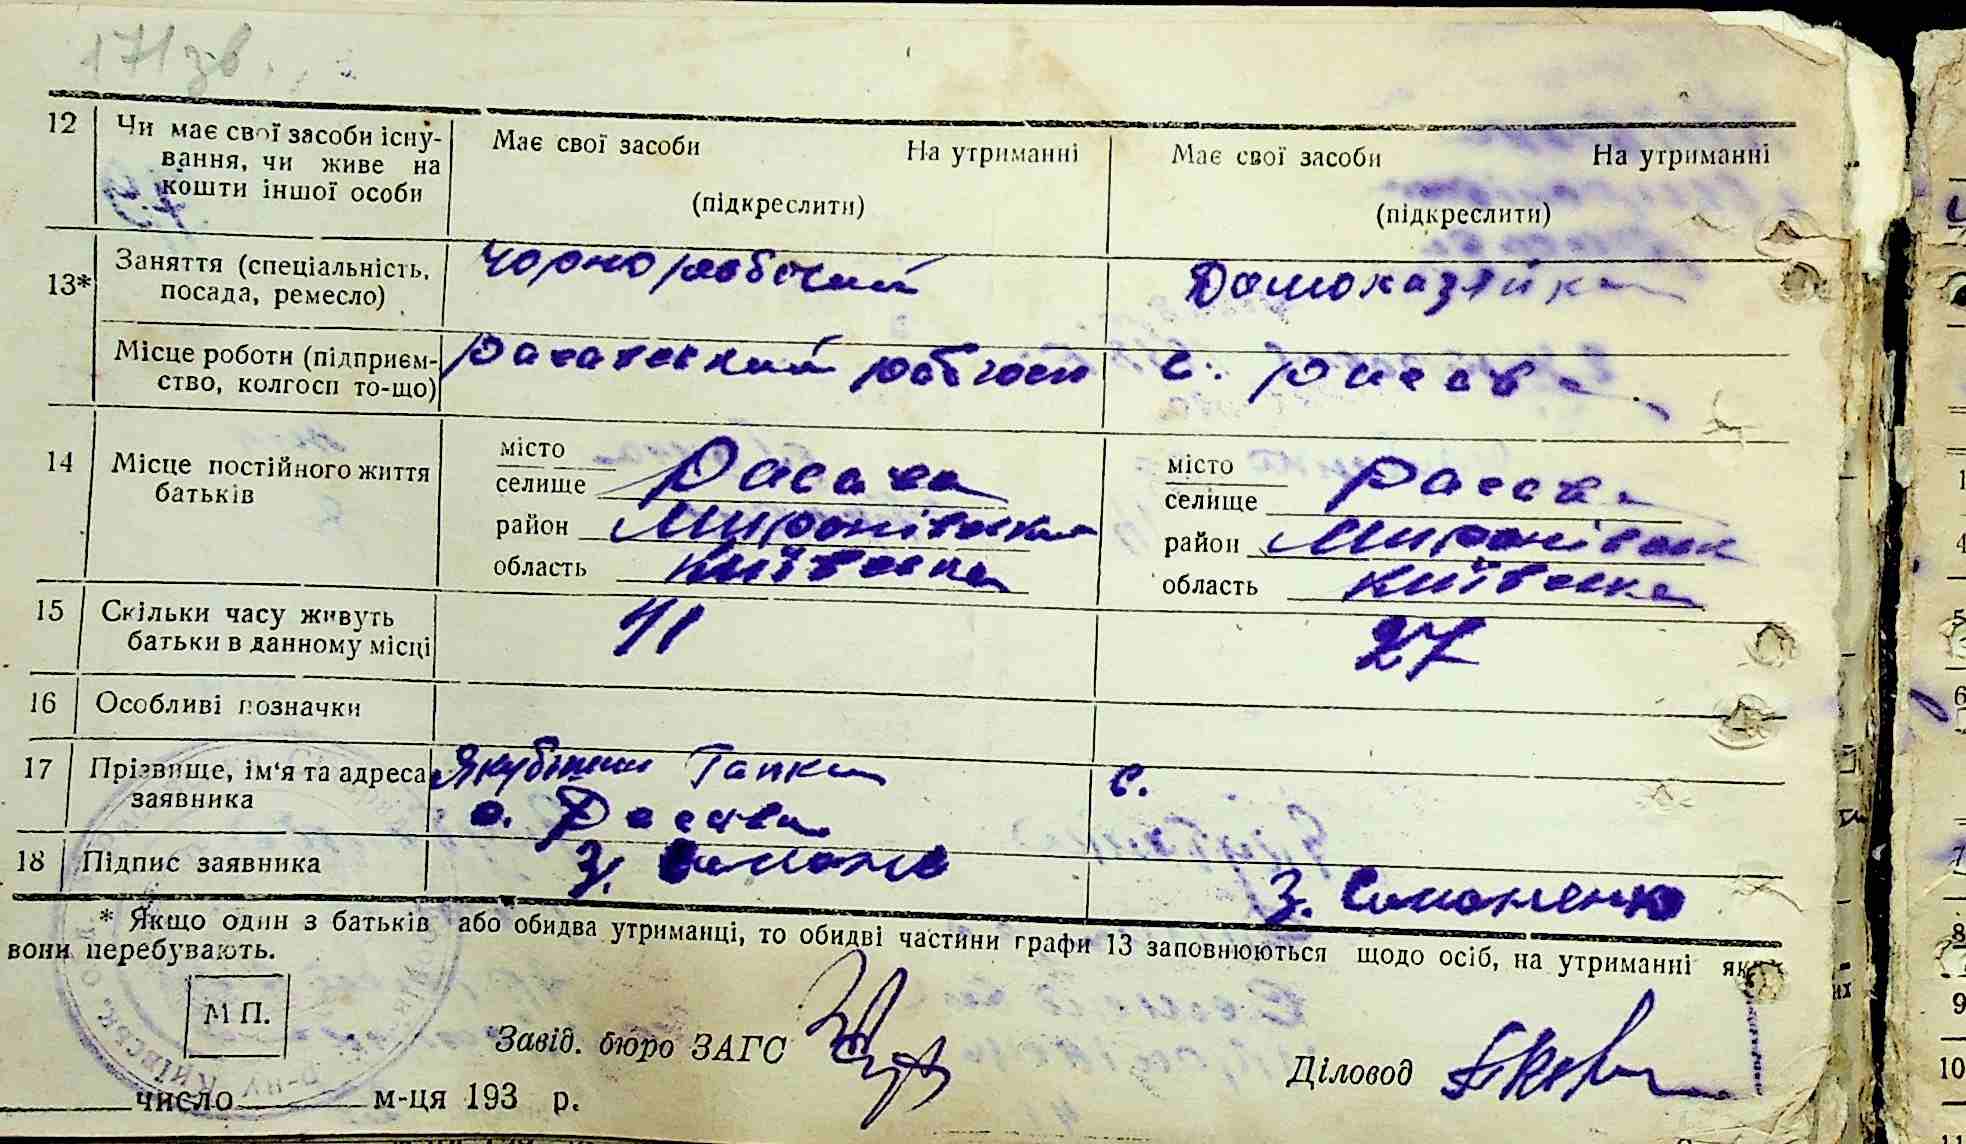 171зв.
12 Чи має свої засоби існу-
вання, чи живе на
кошти іншої особи
Має свої засоби На утриманні
(підкреслити)
Має свої засоби На утриманні
(підкреслити)
13* Заняття (спеціальність,
посада, ремесло)
Чорноробочий
Домохазяйка
Місце роботи (підприєм-
ство, колгосп то-що)
Расавський
с. Расава
14 Місце постійного життя
батьків
місто
селище Расава
район Миронівський
область Київська
місто
селище Расава
район Миронівськ
область Київська
15 Скільки часу живуть
батьки в данному місці
27
16 Особливі позначки
17 Прізвище, ім'я та адреса
заявника
Гапка
с. Расава
с.
18 Підпис заявника
З.
З. Симоненко
* Якщо один з батьків або обидва утриманці, то обидві частини графи 13 заповнюються щодо осіб, на утриманні яких
вони перебувають.
М П.
Завід. бюро ЗАГС
Діловод
число м-ця 193 р.